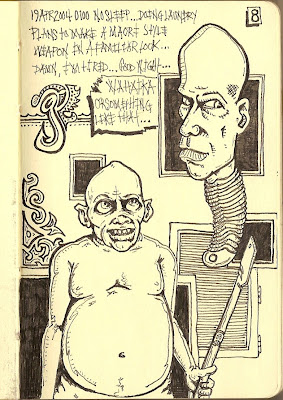 19 APR 2004 0100 NO SLEEP... DOING LAUNDRY
PLANS TO MAKE A MAORI STYLE
WEAPON IN A FAMILIAR LOOK...
DAMN, I'M TIRED... GOOD NIGHT...
WAHAIKA
OR SOMETHING
LIKE THAT...
18